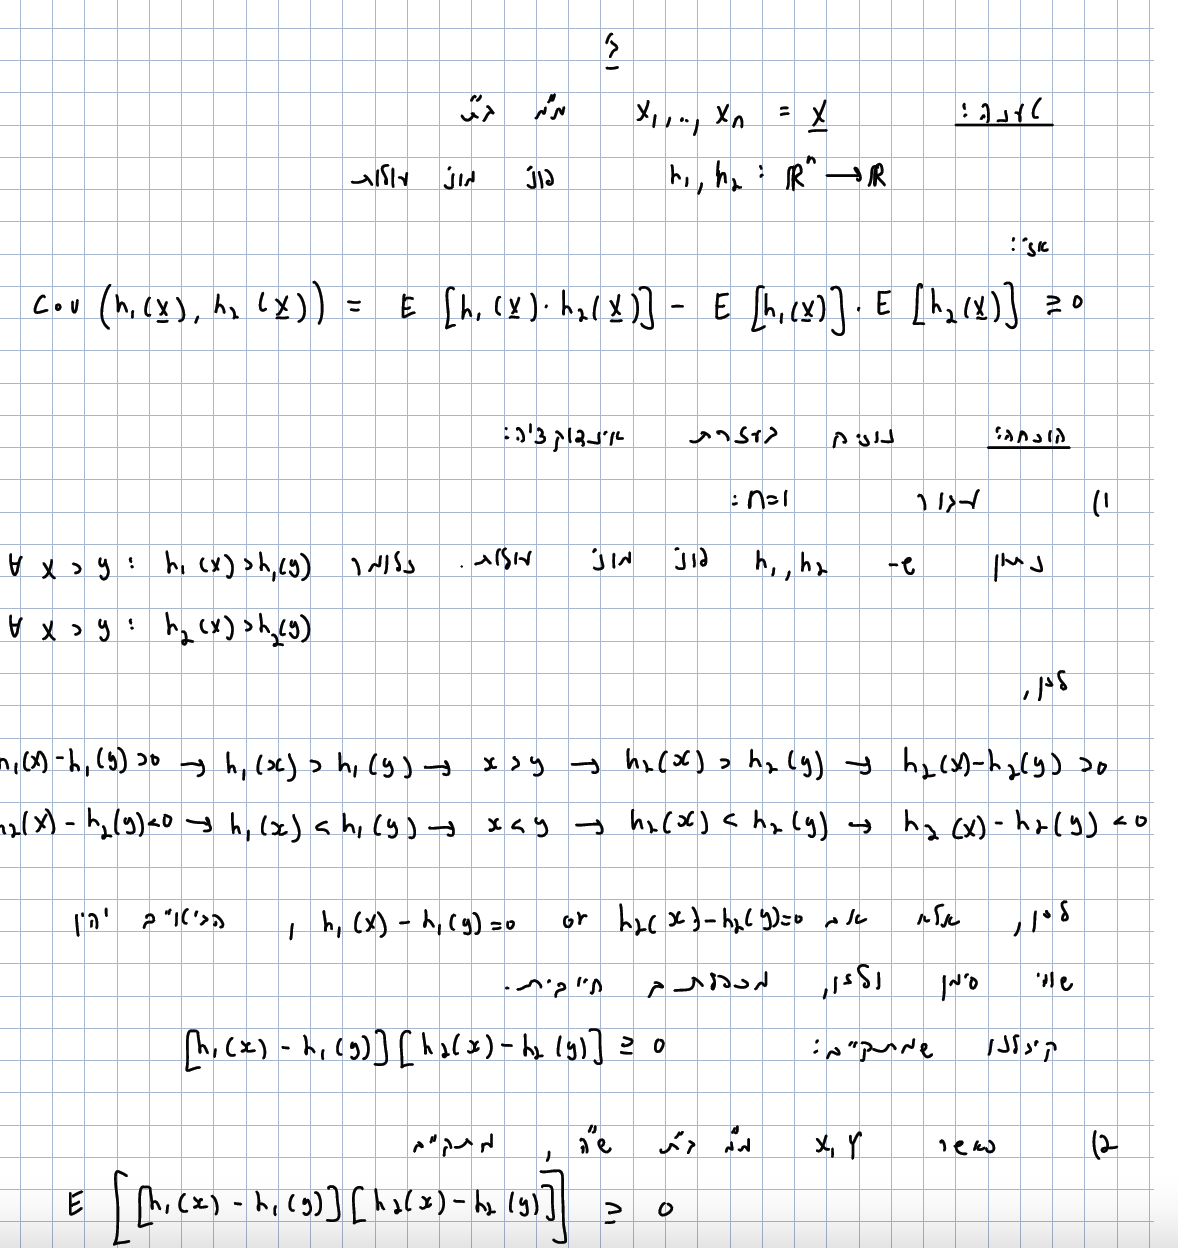 טענה: X₁,..,Xₙ = X מ"מ ב"ת
h₁, h₂ : ℝⁿ → ℝ פונ' מונ' עולות
אזי:
Cov (h₁(X), h₂(X)) = E [h₁(X)·h₂(X)] - E [h₁(X)]·E [h₂(X)] ≥ 0
הוכחה: נוכיח בעזרת אינדוקציה:
1) עבור n=1:
נתון ש- h₁, h₂ פונ' מונ' עולות. כלומר ∀ x > y : h₁(x) > h₁(y)
∀ x > y : h₂(x) > h₂(y)
לכן,
h₁(x)-h₁(y) > 0 → h₁(x) > h₁(y) → x > y → h₂(x) > h₂(y) → h₂(x)-h₂(y) > 0
h₂(x)-h₂(y) < 0 → h₁(x) < h₁(y) → x < y → h₂(x) < h₂(y) → h₂(x)-h₂(y) < 0
לכן, אלא אם h₁(x)-h₁(y)=0 or h₂(x)-h₂(y)=0, הביטויים יהיו
שווי סימן ולכן, מכפלתם חיובית.
קיבלנו שמתקיים: [h₁(x)-h₁(y)][h₂(x)-h₂(y)] ≥ 0
2) כאשר X, Y מ"מ ב"ת ש"ה, מתקיים
E [[h₁(x)-h₁(y)][h₂(x)-h₂(y)]] ≥ 0